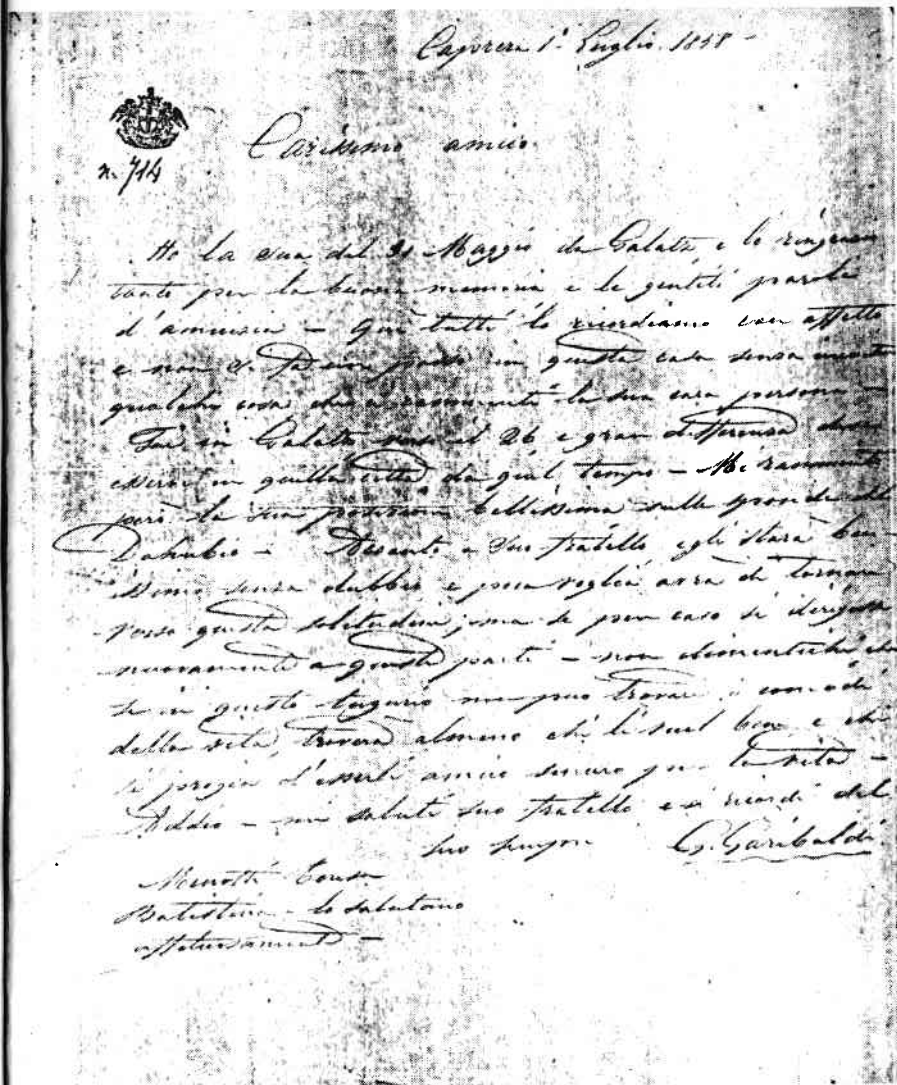 Caprera 1º Luglio 1858 -
n. 714
Carissimo amico
Ho la sua del 31 Maggio da Galatz e lo ringrazio
tanto per la buona memoria e le gentili parole
d'amicizia - Qui tutti lo ricordiamo con affetto
e non si fa un passo in questa casa senza
qualche cosa che rammenti la sua cara persona -
Fui in Galatz verso il 26, e gran differenza deve
esservi in quella città da quel tempo - Mi rammento
però la sua posizione bellissima sulle sponde del
Danubio - a suo fratello, egli starà benis-
simo senza dubbio e poca voglia avrà di tornare
verso queste solitudini; ma se per caso si dirigesse
nuovamente a queste parti - non dimentichi che
se in questo tugurio non può trovare i comodi
della vita, troverà almeno chi li vuol bene, e chi
si pregia d'esserli amico sincero per la vita -
Addio - mi saluti suo fratello e si ricordi del
suo sempre G. Garibaldi
Menotti
Batistina - lo salutano
affettuosamente -